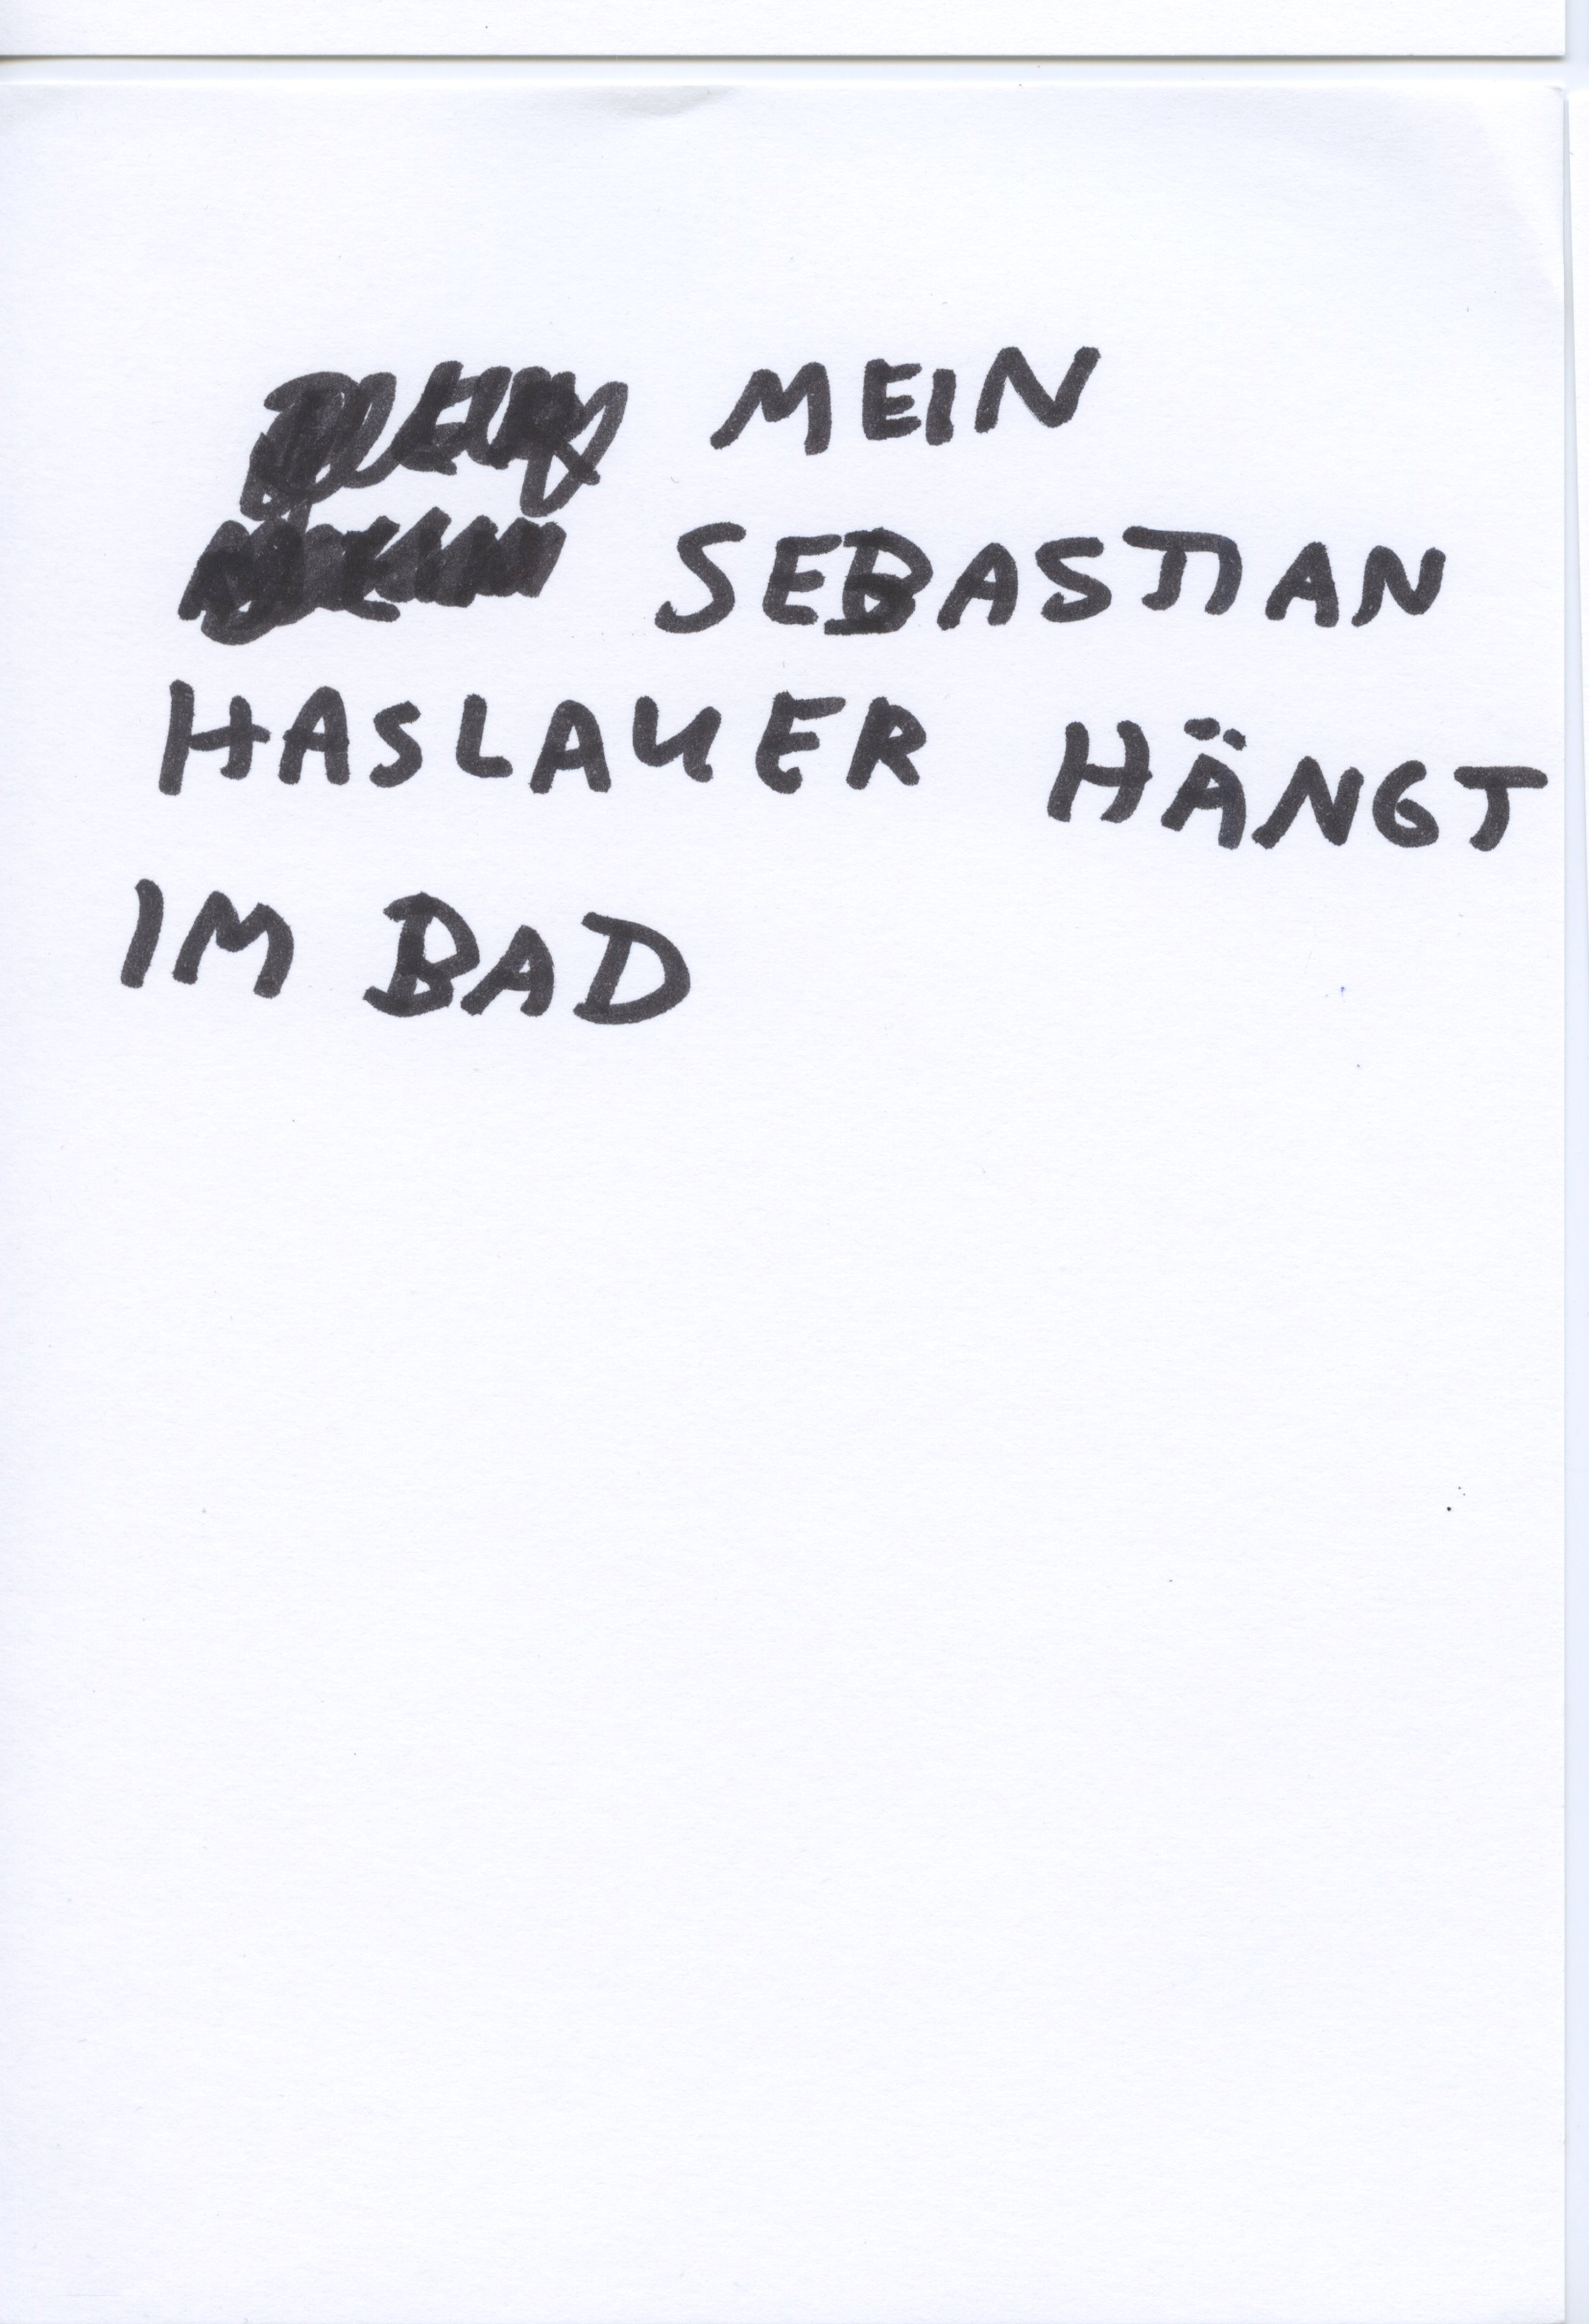 MEIN
SEBASTIAN
HASLAUER HÄNGT
IM BAD